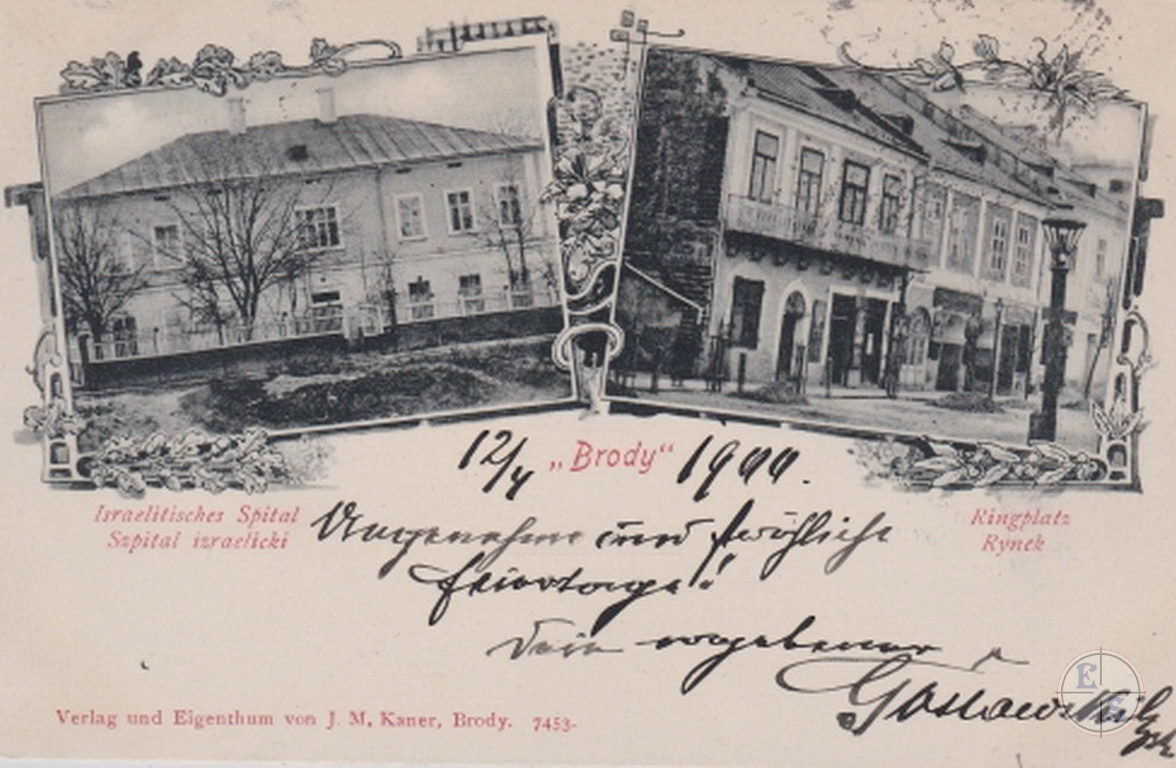 12/4 „Brody“ 1900.
Israelitisches Spital
Szpital izraelicki
Ringplatz
Rynek
Angenehme und fröhliche
Feiertage!
Dein ergebener
Verlag und Eigenthum von J. M. Kaner, Brody. 7453-